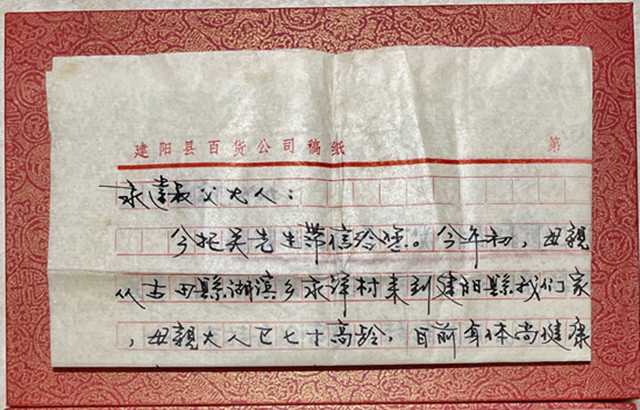 建阳县百货公司稿纸 第
永建叔父大人：
今托吴先生带信给您。今年初，母親
从古田縣湖滨乡永洋村来到建阳縣我们家
，母親大人已七十高龄，目前身体尚健康